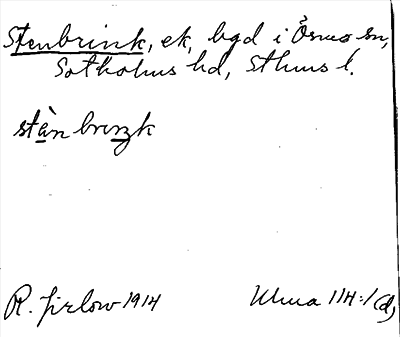 Stenbrink, ek, bgd i Ösmo sn,
Sotholms hd, Sthms l.
stàn brιnk
R. Jirlow 1914 Ulma 114:1 (d)